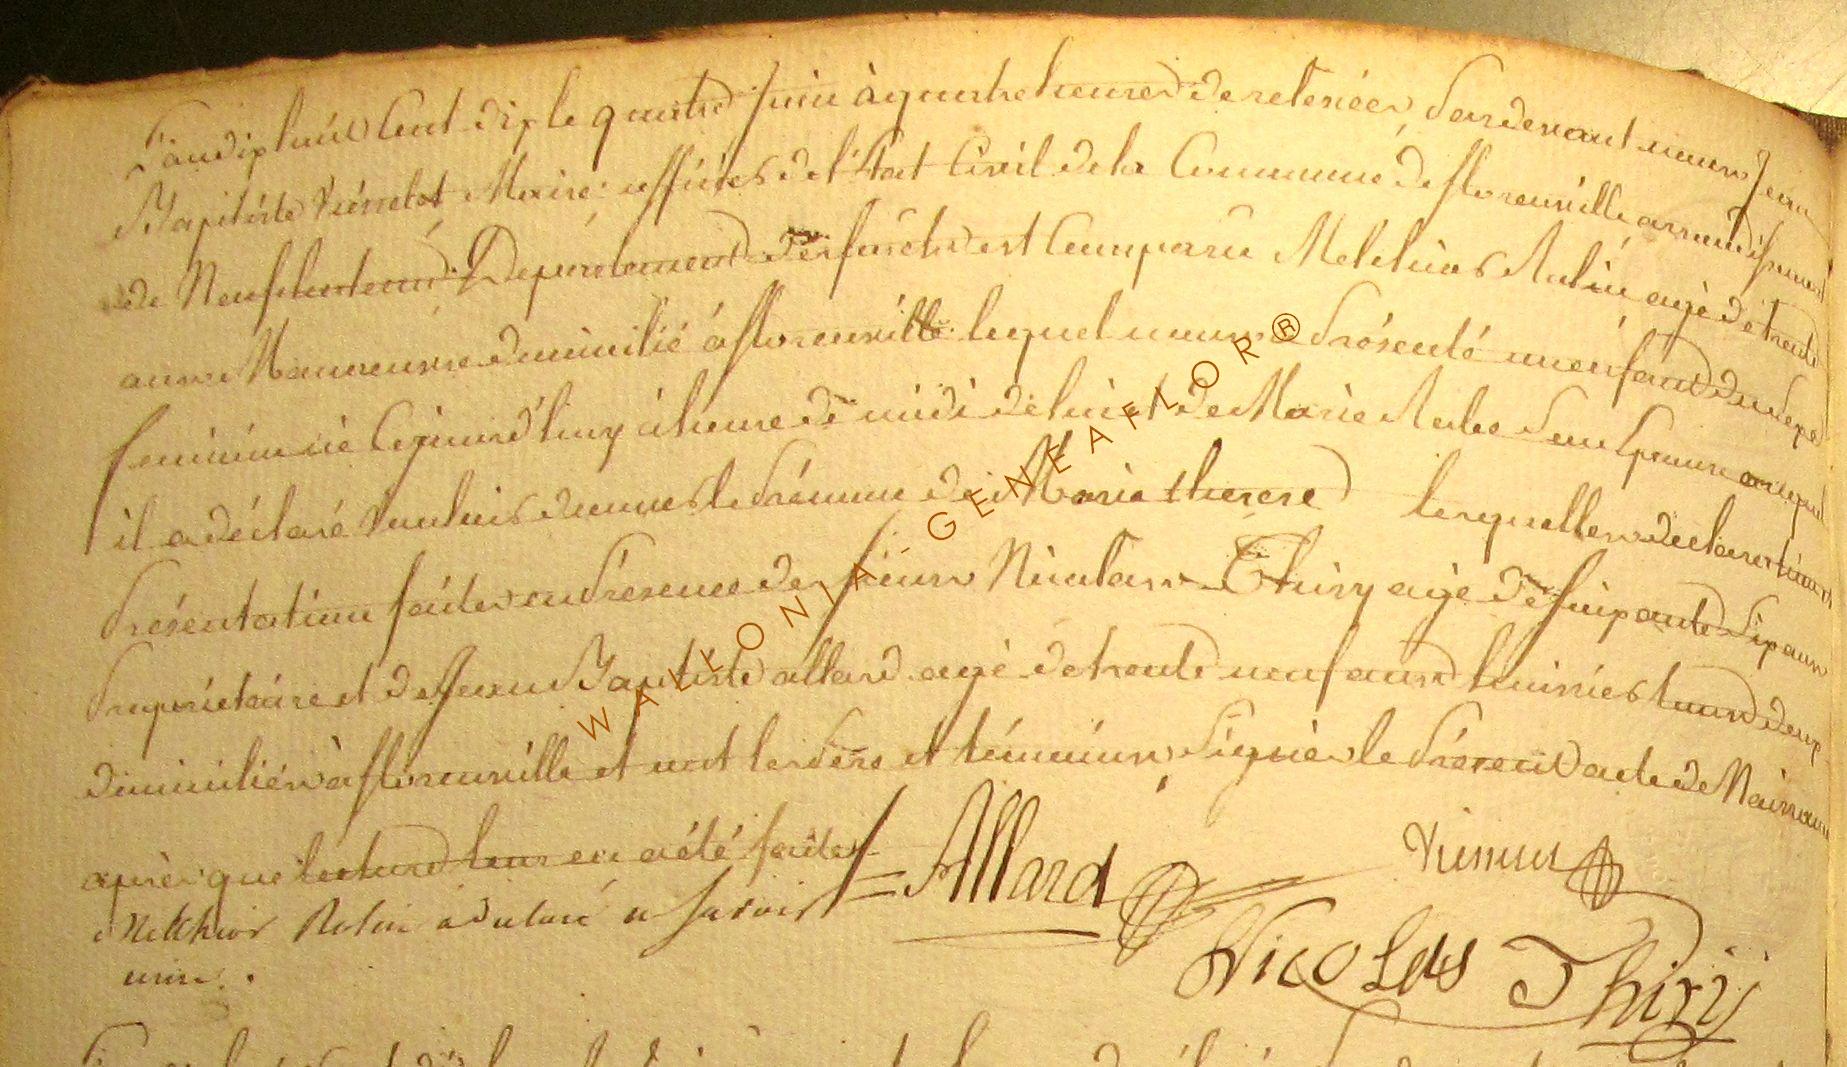 L'an dix huit Cent dix le quatre Juin à quatre heures de relevéee, Pardevant nous Jean
Baptiste Maire officier de l'Etat Civil de la Commune de florenville arrondissement
de Neufchateau Departement des forets est Comparu Melchior Robin agé de trente
ans Manoeuvre domicilié à florenville lequel nous a Présenté un enfant du Sexe
feminin né Cejourd'huy à heure de midi de lui et de Marie Son Epouse auquel
il a déclaré vouloir donner le Prénom de Marie therese lesquelles declaration
Présentation faites en Présence des sieurs Nicolas Thiry agé de Soixante Six ans
Propriétaire et de Jean Baptiste allard agé de trente neuf ans huissier tous deux
domiciliés à florenville et ont les Père et témoins Signés le Présent acte de Naissance
après que lecture leur en a été faite
Melchior Robin a déclaré ne savoir
Allard
Nicolas Thiry
WALLONIA-GENEAFLOR®